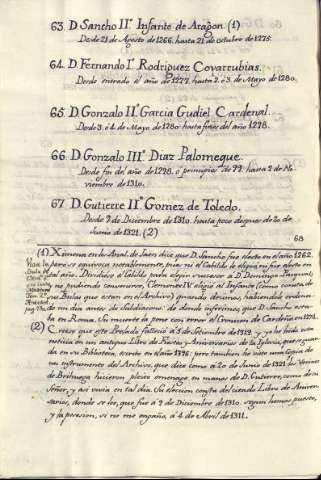 63. D. Sancho IIº Infante de Aragon. (1)
Desde 21 de Agosto de 1266. hasta 21 de Octubre de 1275.
64. D. Fernando Iº Rodriguez Covarrubias.
Desde entrado el año de 1277. hasta 2. ó 3. de Mayo de 1280.
65. D. Gonzalo IIº Garcia Gudiel Cardenal.
Desde 3. ó 4. de Mayo de 1280. hasta fines del año 1298.
66. D. Gonzalo IIIº Diaz Palomeque.
Desde fin del año de 1298. ó principios de 99. hasta 2 de No-
viembre de 1310.
67. D. Gutierre IIº Gomez de Toledo.
Desde 9 de Diciembre de 1310. hasta poco despues de 20 de
Junio de 1321. (2)
68
(1) Ximena en los Anal. de Jaen dice que D. Sancho fue electo en el año 1262.
pero se equivoca notablemente, pues ni el Cabildo le eligio ni fue electo en
tal año. Dividiose el Cabildo para elegir sucesor á D. Domingo Pasqual,
no pudiendo convenirse, Clemente IV. eligió al Infante (como consta de
sus Bulas que estan en el Archivo) quando dicimos, habiendo
un dia antes de de donde inferimos que D. Sancho esta-
ba en Roma. Su muerte la pone con error el Cronicon de Cardeña en 1274.
(2) Creese que este Prelado falleció á 5 de Setiembre de 1319. y ya he visto esta
noticia en un antiguo Libro de Fiestas y Aniversarios de la Iglesia, que se guar-
da en su Biblioteca, escrito en el año 1396. pero tambien he visto una copia de
un instrumento del Archivo, que dice como á 20 de Junio de 1321. los Vecinos
de Brihuega hicieron pleito omenage en manos de D. Gutierre, como de su
Señor, y asi vivia en tal dia. Su eleccion consta del citado Libro de Aniver-
sarios, donde se lee, que fue á 9 de Diciembre de 1310. segun hemos puesto,
y la posesion, si no me engaño, á 4 de Abril de 1311.